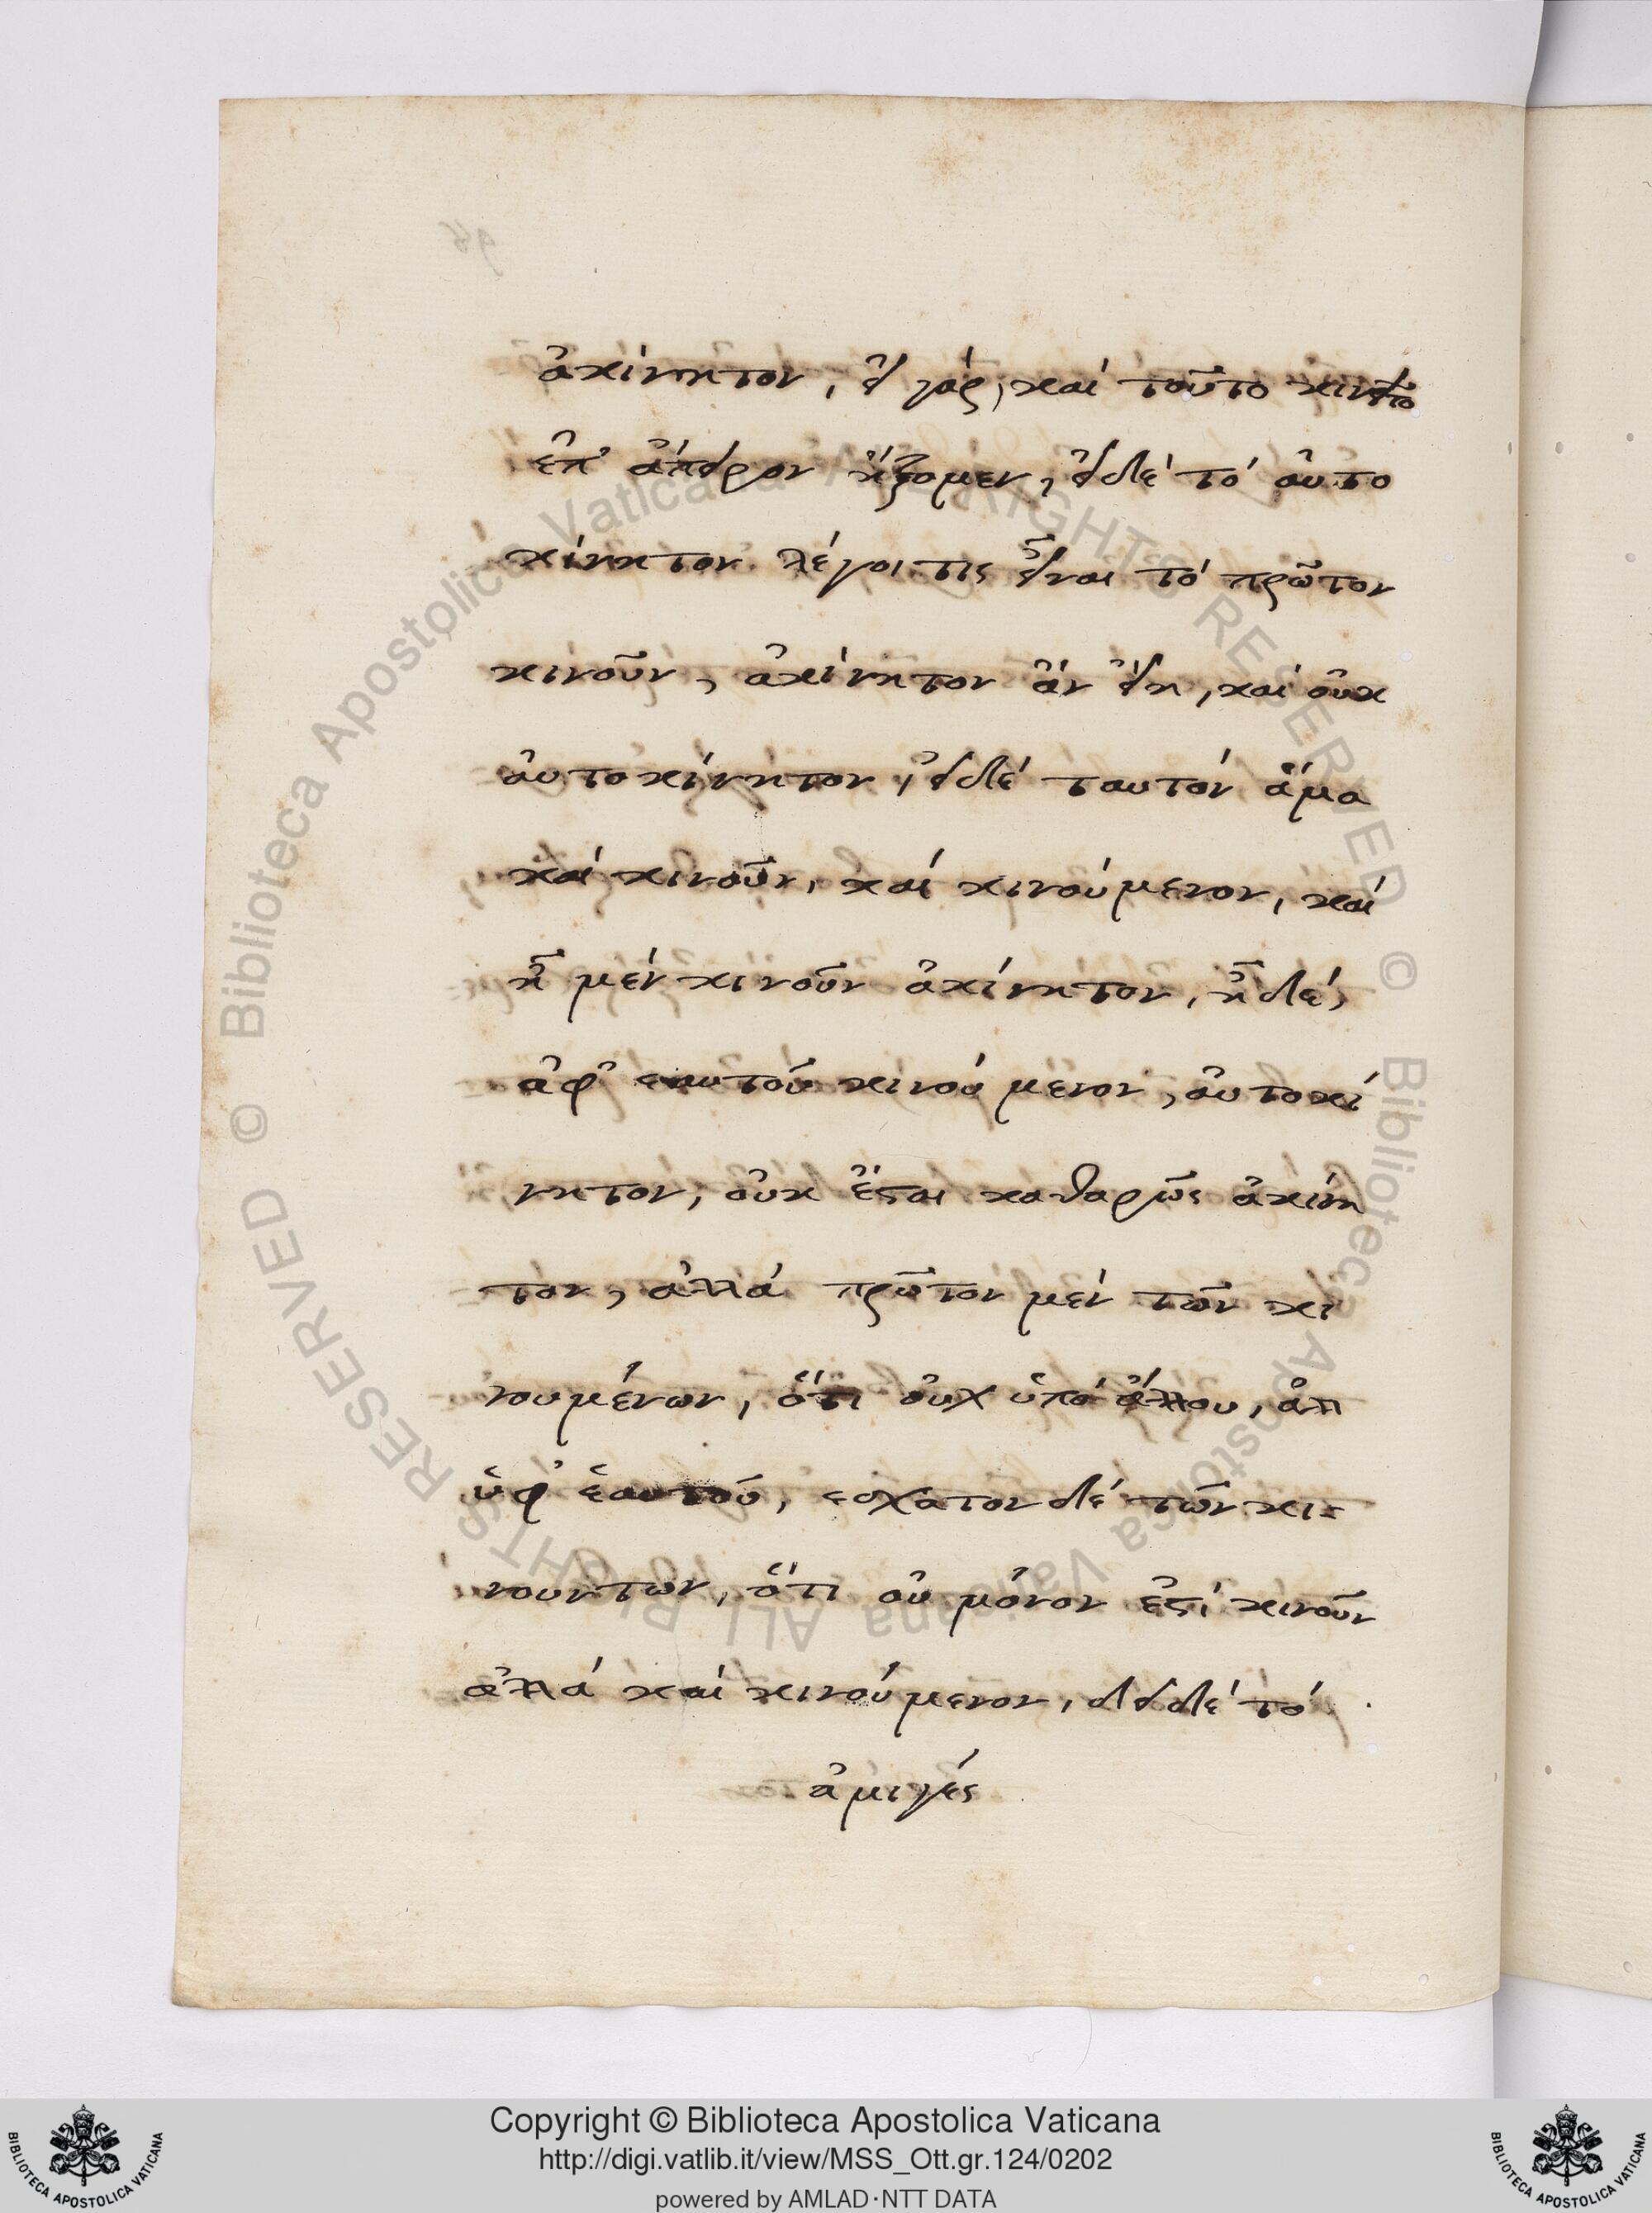 ἀκίνητον, εἰ γάρ, καί τοῦτο κινεῖτο
ἐπ' ἄπειρον ἥξομεν, εἰ δέ τό αὐτο
κίνητον λέγοι τις εἶναι τό πρῶτον
κινοῦν, ἀκίνητον ἄν εἴη, καί οὐκ
αὐτοκίνητον, εἰ δέ ταυτόν ἅμα
καί κινοῦν, καί κινούμενον, καί
ἧ μέν κινοῦν ἀκίνητον, ἧ δέ,
ἀφ' εαυτοῦ κινούμενον, αὐτοκί
νητον, οὐκ ἔσται καθαρῶς ἀκίνη
τον, αλλά πρῶτον μέν τῶν κι
νουμένων, ὅτι οὐχ ὑπό ἄλλου, ἀλλ
ὑφ' ἑαυτοῦ, εσχατον δέ τῶν κι-
νουντων, ὅτι οὐ μόνον ἐστί κινοῦν
ἀλλά καί κινούμενον, δεῖ δέ τό
ἀμιγές
Copyright © Biblioteca Apostolica Vaticana
http://digi.vatlib.it/view/MSS_Ott.gr.124/0202
powered by AMLAD·NTT DATA
BIBLIOTECA APOSTOLICA VATICANA
BIBLIOTECA APOSTOLICA VATICANA
© Biblioteca Apostolica Vaticana ALL RIGHTS RESERVED © Biblioteca Apostolica Vaticana ALL RIGHTS RESERVED